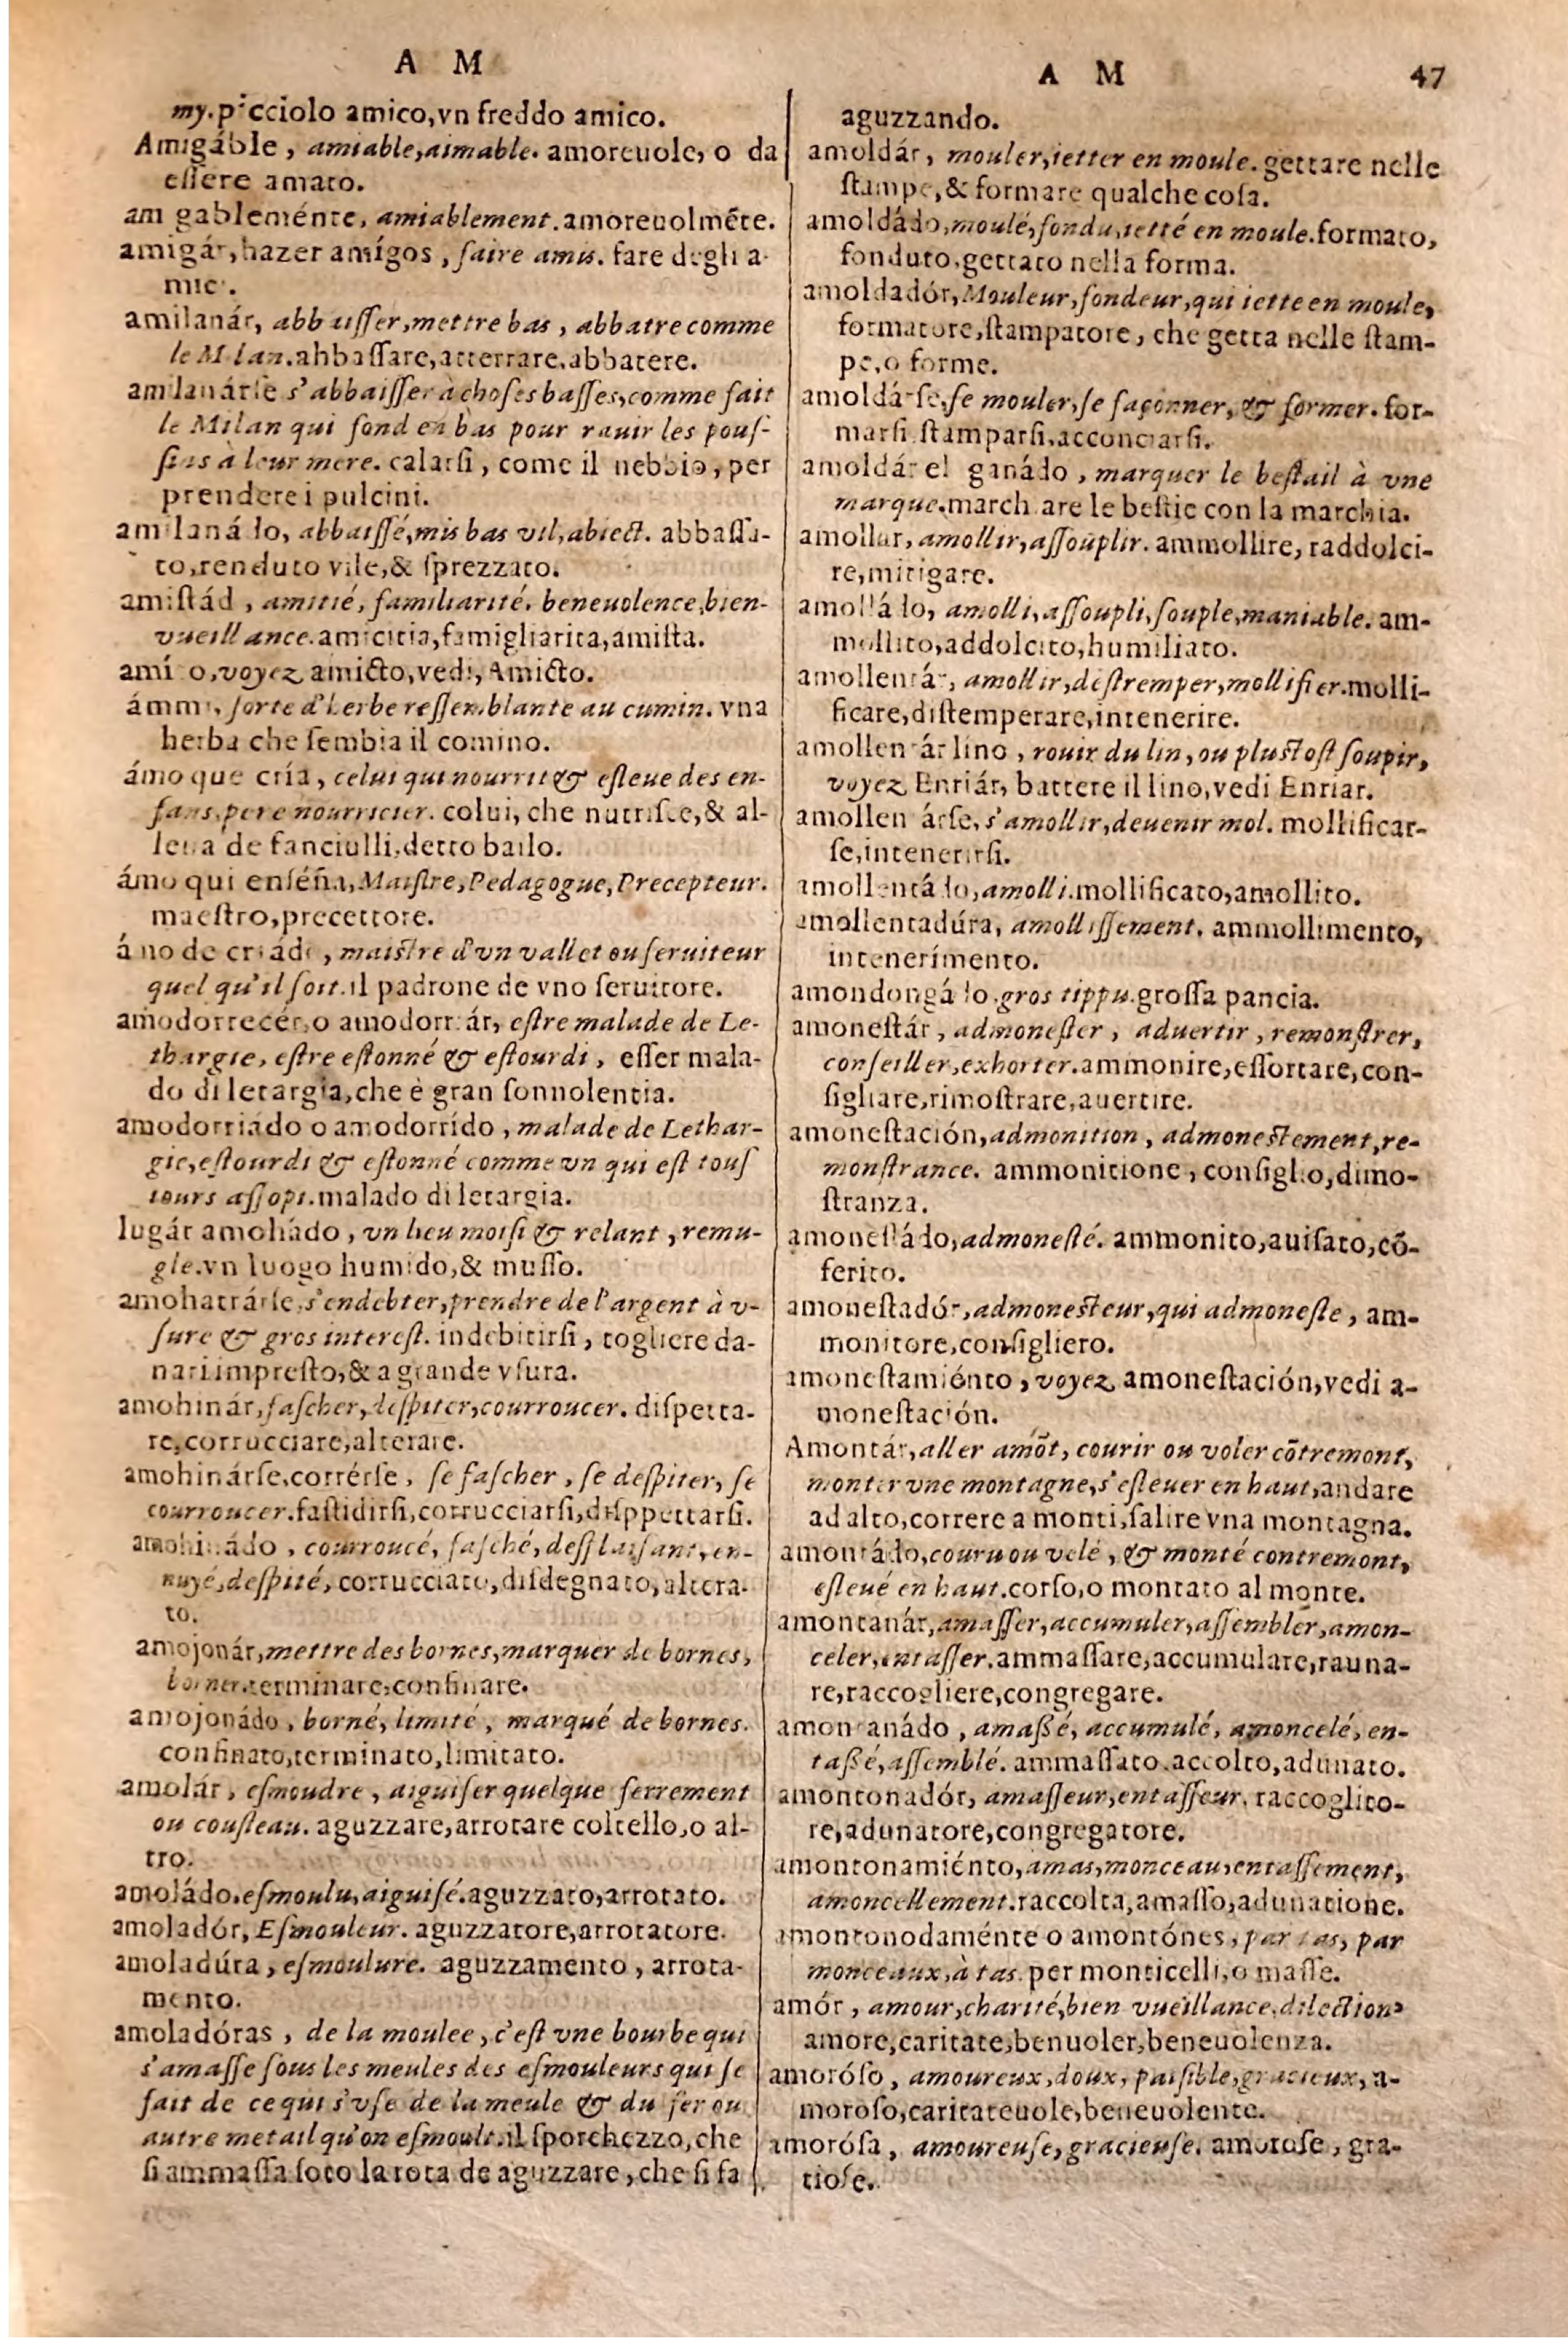 A M
my. picciolo amico, vn freddo amico.
Amigáble, amiable, aimable. amoreuole, o da
essere amato.
amigableménte, amiablement. amoreuolmẽte.
amigár, hazer amígos, faire amis. fare degli a-
mici.
amilanár, abbaisser, mettre bas, abbatre comme
le Milan. abbassare, atterrare, abbatere.
amilanárse s'abbaisser à choses basses, comme fait
le Milan qui fond en bas pour rauir les pous-
sins à leur mere. calarsi, come il nebbio, per
prendere i pulcini.
amilanádo, abbaissé, mis bas vil, abiect. abbassa-
to, renduto vile, & sprezzato.
amistád, amitié, familiarité, beneuolence, bien-
vueillance. amicitia, famigliarita, amista.
amíto, voyez amicto, vedi, Amicto.
ámmi, sorte d'herbe ressemblante au cumin. vna
herba che sembia il comino.
ámo que cría, celui qui nourrit & esleue des en-
fans, pere nourricier. colui, che nutrisce, & al-
leua de fanciulli, detto bailo.
ámo qui enséña, Maistre, Pedagogue, Precepteur.
maestro, precettore.
ámo de criádo, maistre d'vn vallet ou seruiteur
quel qu'il soit. il padrone de vno seruitore.
amodorrecér, o amodorriár, estre malade de Le-
thargie, estre estonné & estourdi, esser mala-
do di letargia, che è gran sonnolentia.
amodorriádo o amodorrído, malade de Lethar-
gie, estourdi & estonné comme vn qui est tous
iours assopi. malado di letargia.
lugár amohádo, vn lieu moisi & relant, remu-
gle. vn luogo humido, & musso.
amohatrárse, s'endebter, prendre de l'argent à v-
sure & gros interest. indebitirsi, togliere da-
nari impresto, & a grande vsura.
amohinár, fascher, despiter, courroucer. dispetta-
re, corrucciare, alterare.
amohinárse, corrérse, se fascher, se despiter, se
courroucer. fastidirsi, corrucciarsi, disppettarsi.
amohinádo, courroucé, fasché, desplaisant, en-
nuyé, despité, corrucciato, disdegnato, altera-
to.
amojonár, mettre des bornes, marquer de bornes,
borner. terminare, confinare.
amojonádo, borné, limité, marqué de bornes.
confinato, terminato, limitato.
amolár, esmoudre, aiguiser quelque ferrement
ou cousteau. aguzzare, arrotare coltello, o al-
tro.
amoládo, esmoulu, aiguisé. aguzzato, arrotato.
amoladór, Esmouleur. aguzzatore, arrotatore.
amoladúra, esmoulure. aguzzamento, arrota-
mento.
amoladóras, de la moulee, c'est vne bourbe qui
s'amasse sous les meules des esmouleurs qui se
fait de ce qui s'vse de la meule & du fer ou
autre metail qu'on esmoult. il sporchezzo, che
si ammassa soto la rota de aguzzare, che si fa
A M 47
aguzzando.
amoldár, mouler, ietter en moule. gettare nelle
stampe, & formare qualche cosa.
amoldádo, moulé, fondu, ietté en moule. formato,
fonduto, gettato nella forma.
amoldadór, Mouleur, fondeur, qui iette en moule,
formatore, stampatore, che getta nelle stam-
pe, o forme.
amoldárse, se mouler, se façonner, & former. for-
marsi, stamparsi, acconciarsi.
amoldár el ganádo, marquer le bestail à vne
marque. march are le bestie con la marchia.
amollar, amollir, assouplir. ammollire, raddolci-
re, mitigare.
amolládo, amolli, assoupli, souple, maniable. am-
mollito, addolcito, humiliato.
amollentár, amollir, destremper, mollifier. molli-
ficare, distemperare, intenerire.
amollentár lino, rouir du lin, ou plustost soupir,
voyez Enriár, battere il lino, vedi Enriar.
amollentárse, s'amollir, deuenir mol. mollificar-
se, intenerirsi.
amollentádo, amolli. mollificato, amollito.
amollentadúra, amollissement. ammollimento,
intenerímento.
amondongádo, gros tippu. grossa pancia.
amonestár, admonester, aduertir, remonstrer,
conseiller, exhorter. ammonire, essortare, con-
sigliare, rimostrare, auertire.
amonestación, admonition, admonestement, re-
monstrance. ammonitione, consiglio, dimo-
stranza.
amonestádo, admonesté. ammonito, auisato, cõ-
ferito.
amonestadór, admonesteur, qui admoneste, am-
monitore, consigliero.
amonestamiénto, voyez amonestación, vedi a-
monestación.
Amontár, aller amõt, courir ou voler cõtremont,
monter vne montagne, s'esleuer en haut, andare
ad alto, correre a monti, salire vna montagna.
amontádo, couru ou volé, & monté contremont,
esleué en haut. corso, o montato al monte.
amontanár, amasser, accumuler, assembler, amon-
celer, entasser. ammassare, accumulare, rauna-
re, raccogliere, congregare.
amontanádo, amassé, accumulé, amoncelé, en-
tassé, assemblé. ammassato, accolto, adunato.
amontonadór, amasseur, entasseur. raccoglito-
re, adunatore, congregatore.
amontonamiénto, amas, monceau, entassement,
amoncellement. raccolta, amasso, adunatione.
amontonodaménte o amontónes, par tas, par
monceaux, à tas. per monticelli, o masse.
amór, amour, charité, bien vueillance, dilection,
amore, caritate, benuoler, beneuolenza.
amoróso, amoureux, doux, paisible, gracieux, a-
moroso, caritateuole, beneuolente.
amorósa, amoureuse, gracieuse. amorose, gra-
tiose.